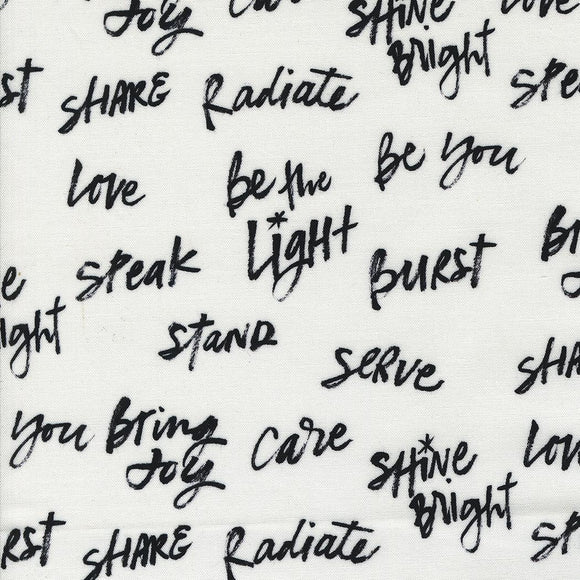 Joy Care SHINE Love
Bright
st SHARE Radiate Speak
Love Be the Be You
LigHt
Speak BURST Br
e
ight STAND SeRve SHA
you Bring Care SHINE Love
Joy Bright
RST SHARE Radiate Spe